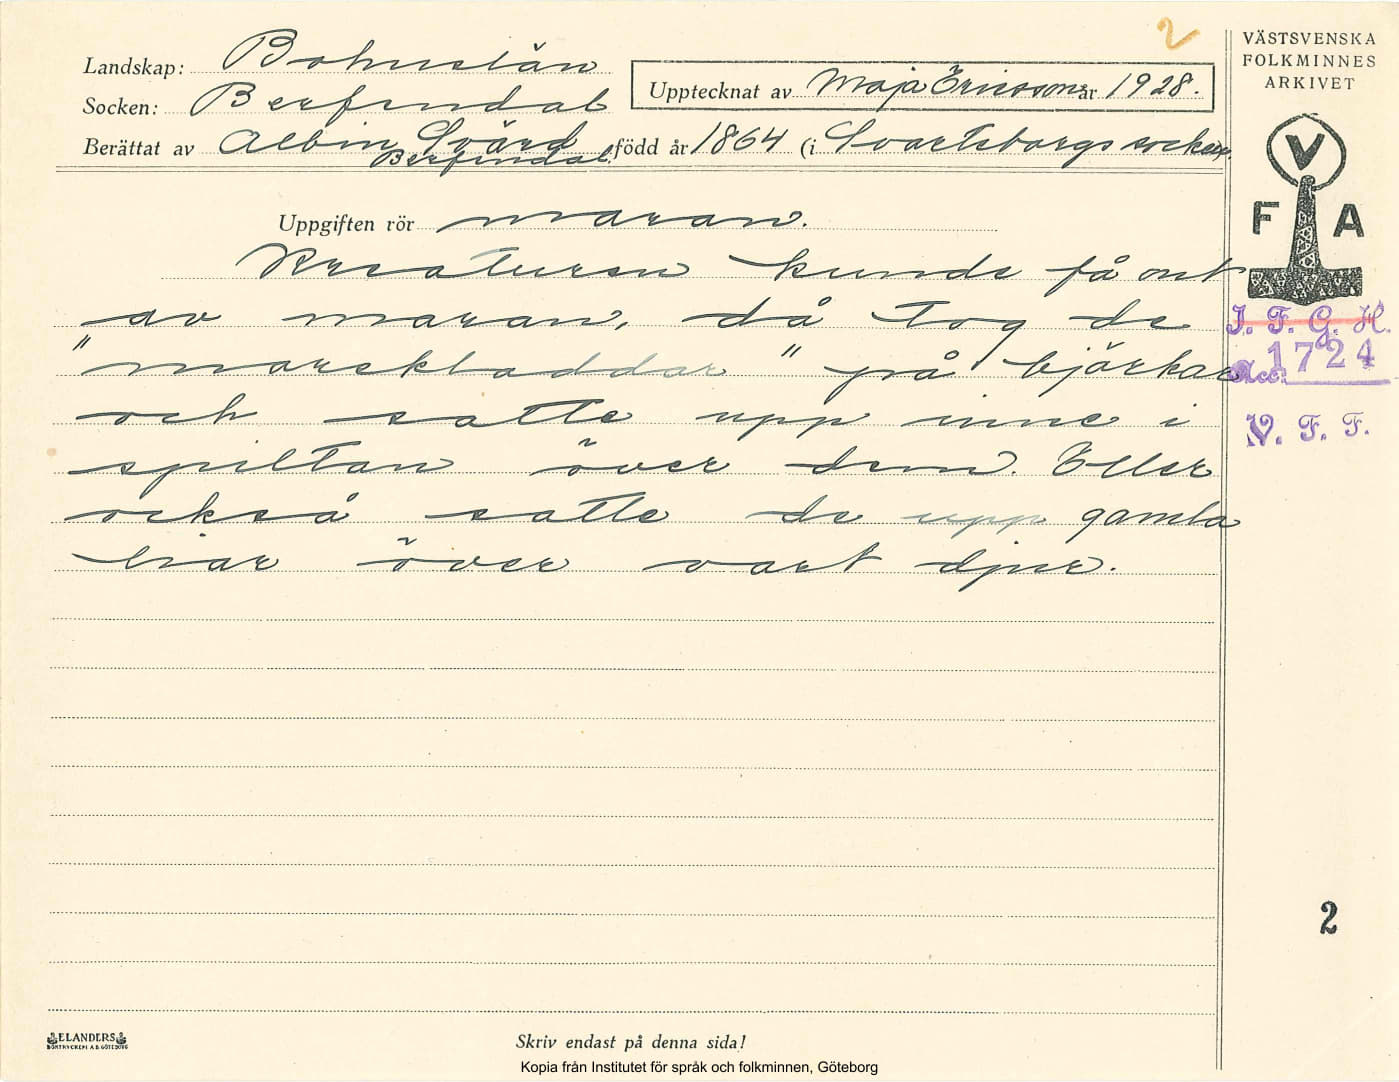 2
Landskap: Bohuslän
Socken: Berfendal
Upptecknat av Maja Ericsson år 1928.
Berättat av Albin Svärd född år 1864 (i Svarteborgs socken.
Berfendal.
VÄSTSVENSKA
FOLKMINNES
ARKIVET
V
F A
Uppgiften rör maran.
Kreaturen kunde få ont
av maran, då tog de
"marekladdar" på björkar
och satte upp inne i
spiltan över dem. Eller
också satte de upp gamla
liar över vart djur.
I. F. G. H.
Acc. 1724
V. F. F.
2
ELANDERS
BOKTRYCKERI A.B. GÖTEBORG
Skriv endast på denna sida!
Kopia från Institutet för språk och folkminnen, Göteborg